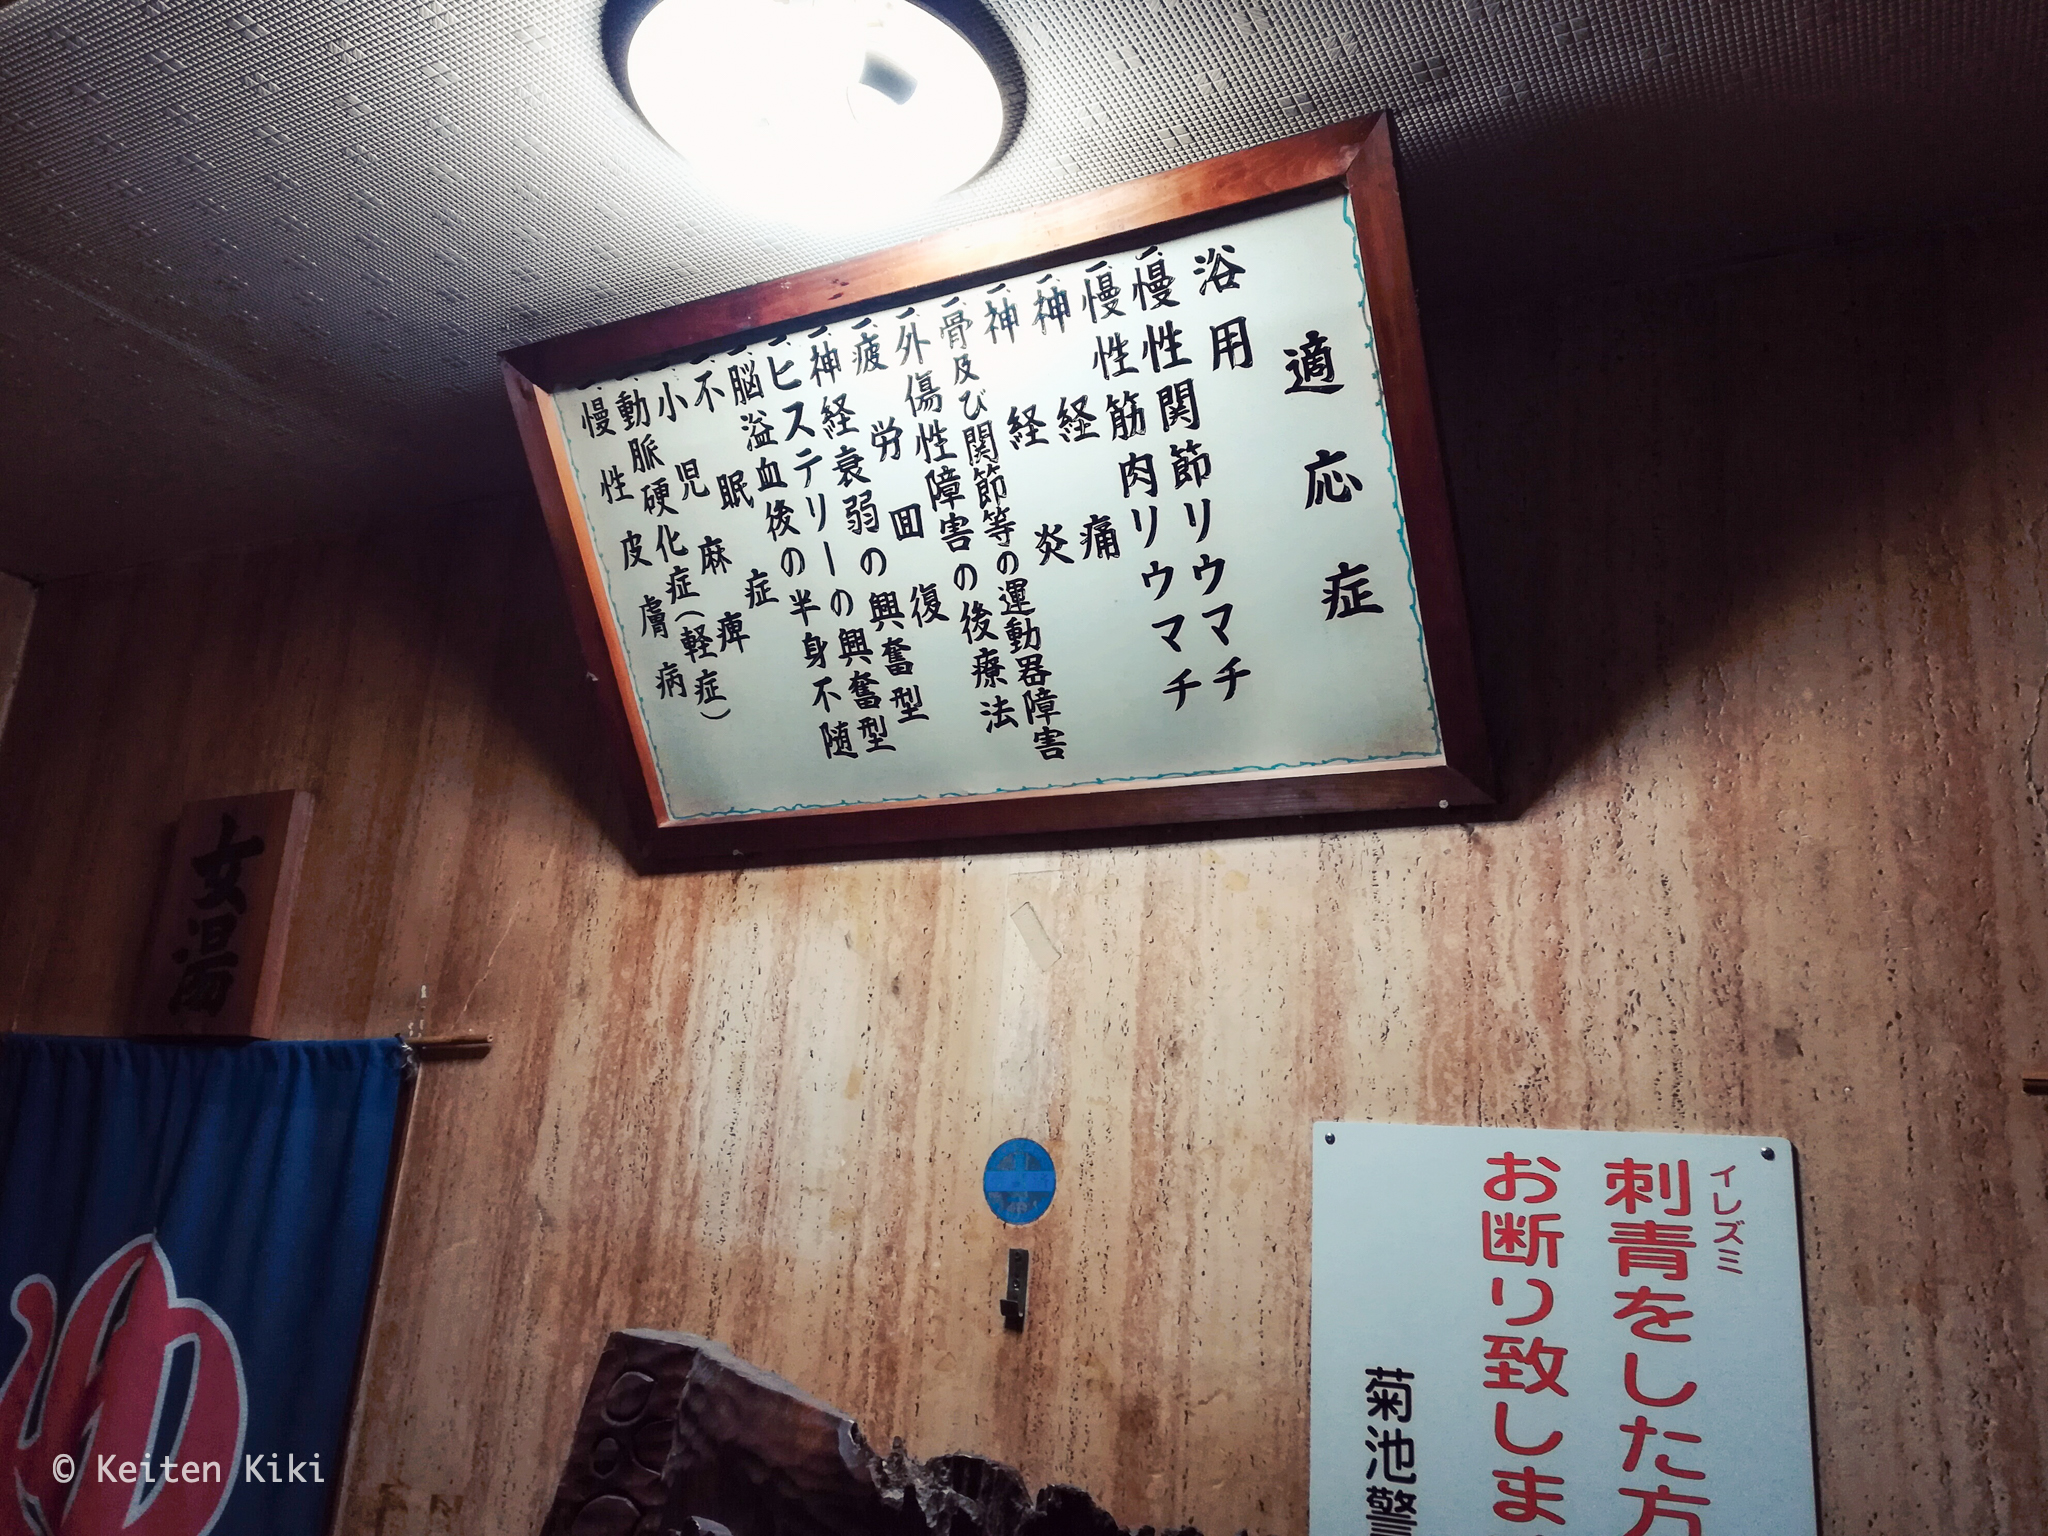 適応症
浴用
一、慢性関節リウマチ
一、慢性筋肉リウマチ
一、神経痛
一、神経炎
一、骨及び関節等の運動器障害
一、外傷性障害の後療法
一、疲労回復
一、神経衰弱の興奮型
一、ヒステリーの興奮型
一、脳溢血後の半身不随
一、不眠症
一、小児麻痺
一、動脈硬化症(軽症)
一、慢性皮膚病
女湯
ゆ
イレズミ
刺青をした方
お断り致しま
菊池警
© Keiten Kiki